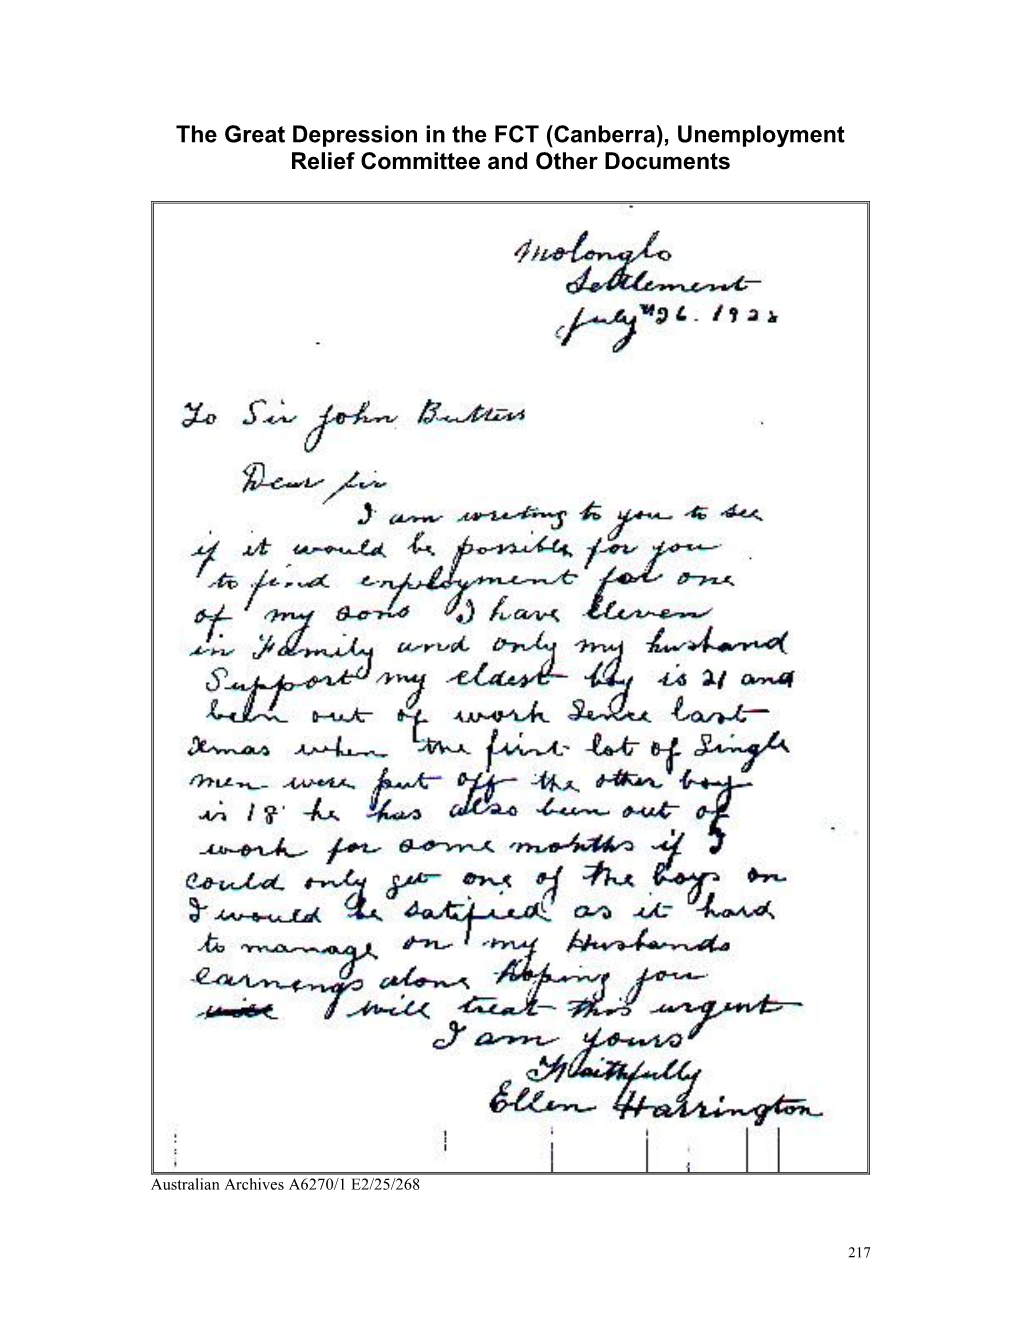 The Great Depression in the FCT (Canberra), Unemployment
Relief Committee and Other Documents
Molonglo
Settlement
July 26. 1928
To Sir John Butters
Dear Sir
I am wreting to you to see
if it would be possible for you
to find employment for one
of my sons I have Eleven
in Family and only my husband
Support my eldest boy is 21 and
been out of work Sence last
Xmas when the first lot of Single
men were put off the other boy
is 18 he has also been out of
work for some months if I
could only get one of the boys on
I would be satified as it hard
to manage on my Husbands
earnengs alone hoping you
will treat this urgent
I am yours
Faithfully
Ellen Harrington
Australian Archives A6270/1 E2/25/268
217